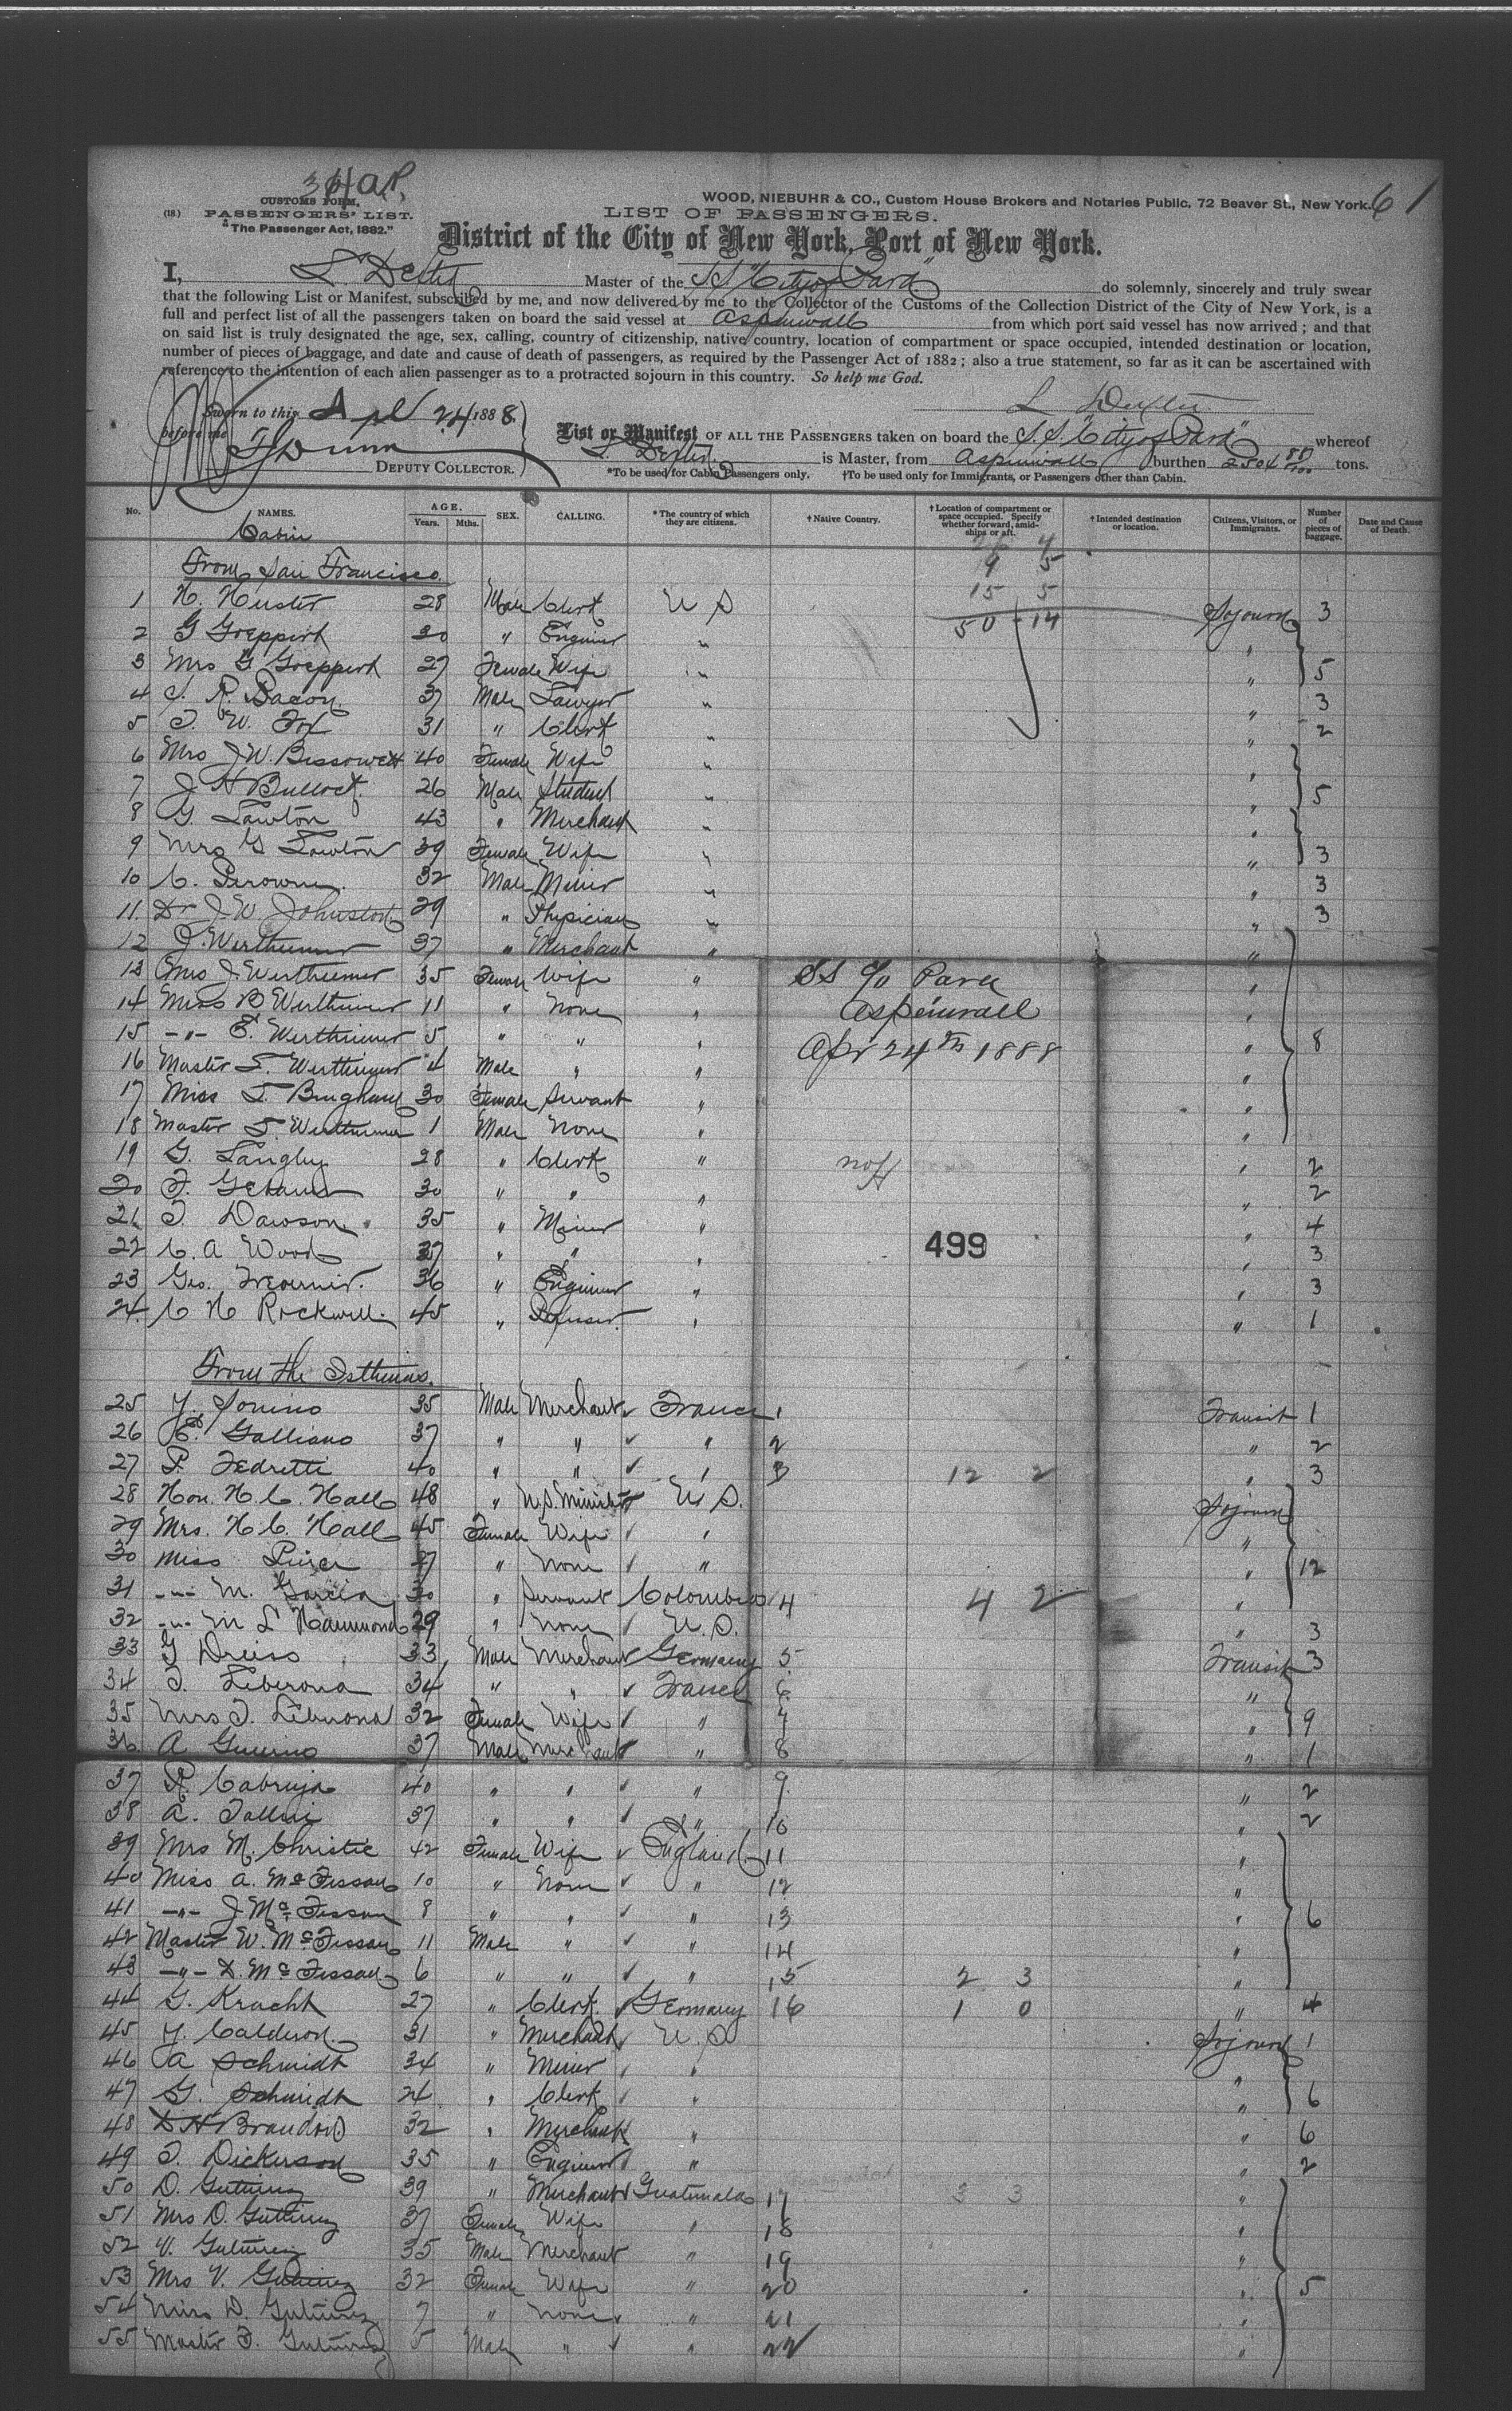 34 ap. 61
CUSTOMS FORM, WOOD, NIEBUHR & CO., Custom House Brokers and Notaries Public, 72 Beaver St., New York.
(18) PASSENGERS' LIST. LIST OF PASSENGERS.
"The Passenger Act, 1882."
District of the City of New York, Port of New York.
I, Master of the S.S. "City of Para" do solemnly, sincerely and truly swear
that the following List or Manifest, subscribed by me, and now delivered by me to the Collector of the Customs of the Collection District of the City of New York, is a
full and perfect list of all the passengers taken on board the said vessel at Aspinwall from which port said vessel has now arrived; and that
on said list is truly designated the age, sex, calling, country of citizenship, native country, location of compartment or space occupied, intended destination or location,
number of pieces of baggage, and date and cause of death of passengers, as required by the Passenger Act of 1882; also a true statement, so far as it can be ascertained with
reference to the intention of each alien passenger as to a protracted sojourn in this country. So help me God.
L Dexter
Sworn to this Apl 24 1888.
before me
DEPUTY COLLECTOR.
List or Manifest OF ALL THE PASSENGERS taken on board the S.S. "City of Para" whereof
L. Dexter is Master, from Aspinwall burthen 2504 tons.
*To be used for Cabin Passengers only. †To be used only for Immigrants, or Passengers other than Cabin.
No. NAMES. AGE. Years. Mths. SEX. CALLING. *The country of which they are citizens. †Native Country. †Location of compartment or space occupied. Specify whether forward, amidships or aft. †Intended destination or location. Citizens, Visitors, or Immigrants. Number of pieces of baggage. Date and Cause of Death.
Cabin
From San Francisco.
9 5
15 5
50 14
1 28 Male Clerk U S Sojourn 3
2 G Goeppert 30 " Engineer " "
3 Mrs G Goeppert 27 Female Wife " " 5
4 R. Bacon 37 Male Lawyer " " 3
5 W. Fox 31 " Clerk " " 2
6 Mrs J W. 40 Female Wife " "
7 J H Bullock 26 Male Student " " 5
8 G. Lawton 43 " Merchant " "
9 Mrs G Lawton 39 Female Wife " " 3
10 C. 32 Male Miner " " 3
11 Dr J. W. Johnston 29 " Physician " " 3
12 J. Wertheimer 37 " Merchant " "
13 Mrs J. Wertheimer 35 Female Wife " "
14 Miss B Wertheimer 11 " None " "
15 -"- E. Wertheimer 5 " " " " 8
16 Master Wertheimer 4 Male " " "
17 Miss Bingham 30 Female Servant " "
18 Master Wertheimer 1 Male None " "
SS c/o Para
Aspinwall
Apr 24th 1888
19 G. Langley 28 " Clerk " " 2
20 30 " " " " 2
21 Dawson 35 " Miner " " 4
22 C. A Wood 37 " " " " 3
499
23 Geo. 36 " Engineer " " 3
24 C H Rockwell 45 " " " 1
From the Isthmus.
25 Y. Sonino 35 Male Merchant France 1 Transit 1
26 E. Galliano 37 " " " 2 " 2
27 P. Fedretti 40 " " " 3 12 2 " 3
28 Hon. H. C. Hall 48 " U.S. Minister U S. Sojourn
29 Mrs. H. C. Hall 45 Female Wife " "
30 Miss " None " " 12
31 -"- M. Garcia 30 " Servant Colombia 4 4 2 "
32 -"- M L Hammond 29 " None U. S. " 3
33 G 33 Male Merchant Germany 5 Transit 3
34 34 " " France 6 "
35 Mrs 32 Female Wife " 7 " 9
36 A 37 Male Merchant " 8 " 1
37 R. Cabruja 40 " " " 9 " 2
38 A. 37 " " " 10 " 2
39 Mrs M. Christie 42 Female Wife England 11 "
40 Miss A. 10 " None " 12 "
41 -"- J 8 " " " 13 " 6
42 Master W. 11 Male " " 14 "
43 -"- D. 6 " " " 15 2 3 "
44 G. Kracht 27 " Clerk Germany 16 1 0 " 4
45 Y. Calderon 31 " Merchant U. S Sojourn 1
46 A Schmidt 34 " Miner " "
47 G. Schmidt 24 " Clerk " " 6
48 D H Brandon 32 " Merchant " " 6
49 Dickerson 35 " Engineer " " 2
50 D. Gutierrez 39 " Merchant Guatemala 17 3 3 "
51 Mrs D. Gutierrez 37 Female Wife " 18 "
52 V. Gutierrez 35 Male Merchant " 19 "
53 Mrs V. Gutierrez 32 Female Wife " 20 " 5
54 Miss D. Gutierrez 7 " None " 21 "
55 Master F. Gutierrez 5 Male " " 22 "